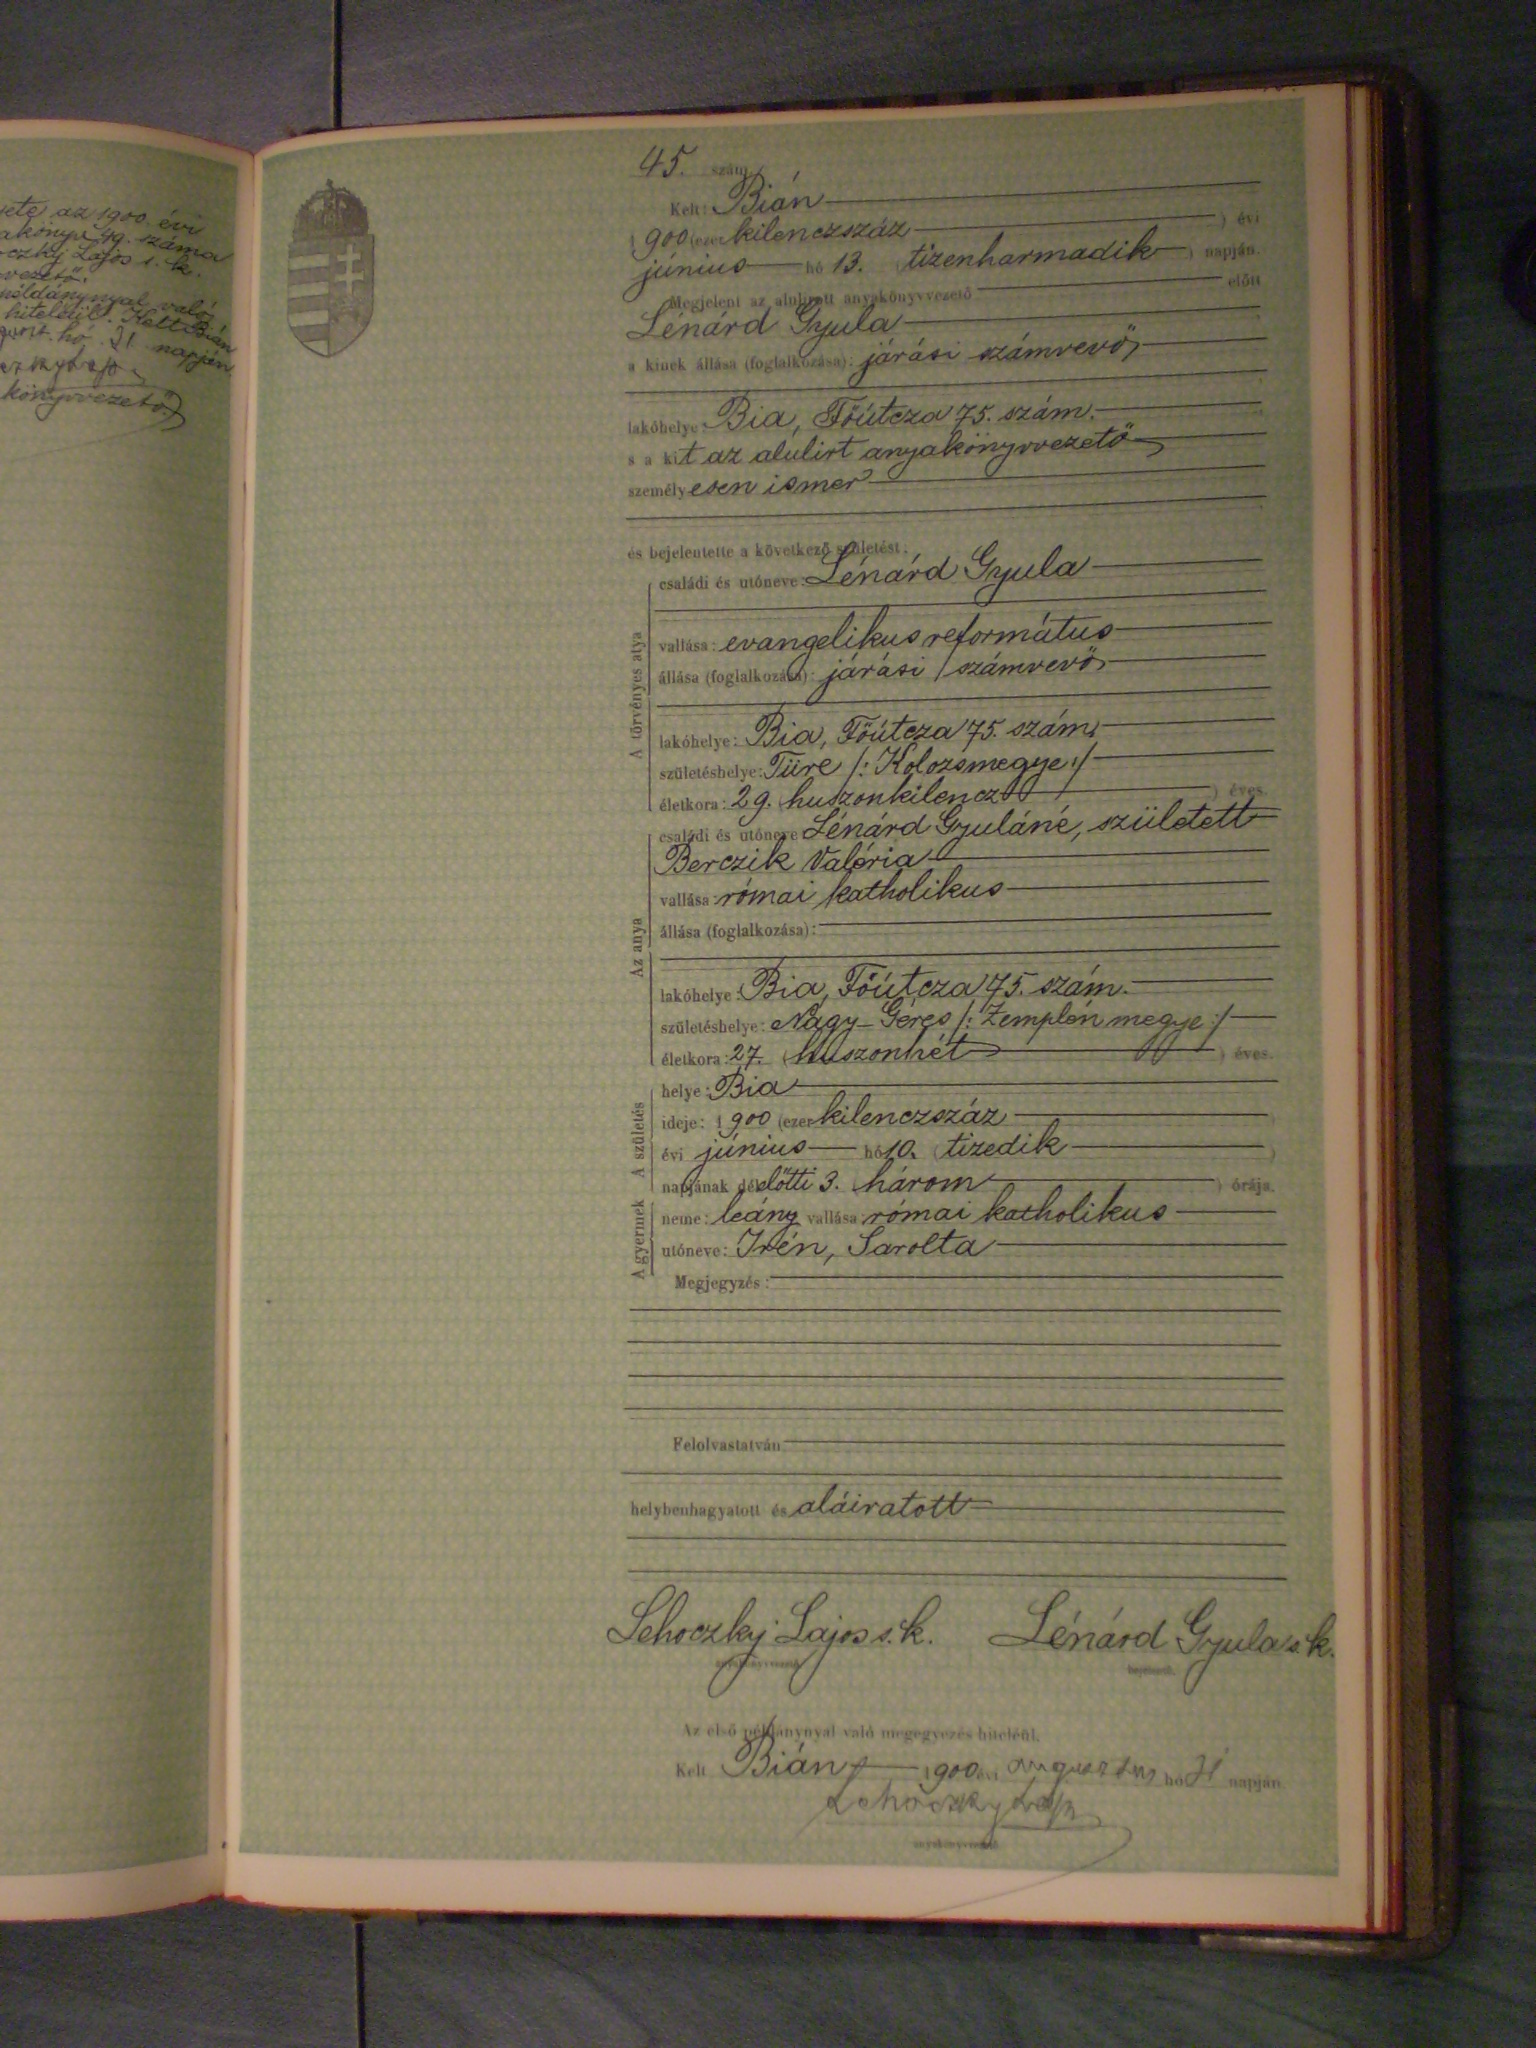 ete az 1900 évi
akönyv 49. száma
czky Lajos s. k.
vezető.
példánynyal való
hiteléül. Kelt Bián
hó 31 napján
könyvvezető
45. szám.
Kelt: Bián
1900 (ezer kilenczszáz ) évi
június hó 13. (tizenharmadik ) napján.
Megjelent az alulirott anyakönyvvezető előtt
Lénárd Gyula
a kinek állása (foglalkozása): járási számvevő,
lakóhelye: Bia, Főútcza 75. szám.
s a kit az alulirt anyakönyvvezető
személyesen ismer
és bejelentette a következő születést:
A törvényes atya
családi és utóneve: Lénárd Gyula
vallása: evangelikus református
állása (foglalkozása): járási számvevő,
lakóhelye: Bia, Főútcza 75. szám,
születéshelye: Türe /: Kolozsmegye :/
életkora: 29. (huszonkilencz ) éves.
Az anya
családi és utóneve Lénárd Gyuláné, született
Berczik Valéria
vallása: római katholikus
állása (foglalkozása):
lakóhelye: Bia, Főútcza 75. szám.
születéshelye: Nagy-Géres /: Zemplén megye :/
életkora: 27. (huszonhét ) éves.
A születés
helye: Bia
ideje: 1900 (ezer kilenczszáz
évi június hó 10. (tizedik )
napjának délelőtti 3. (három ) órája.
A gyermek
neme: leány vallása: római katholikus
utóneve: Irén, Sarolta
Megjegyzés:
Felolvastatván
helybenhagyatott és aláiratott
Lehoczky Lajos s. k. Lénárd Gyula s. k.
anyakönyvvezető bejelentő.
Az első példánynyal való megegyezés hiteléül.
Kelt Bián 1900 évi augusztus hó 31 napján
Lehoczky Lajos
anyakönyvvezető